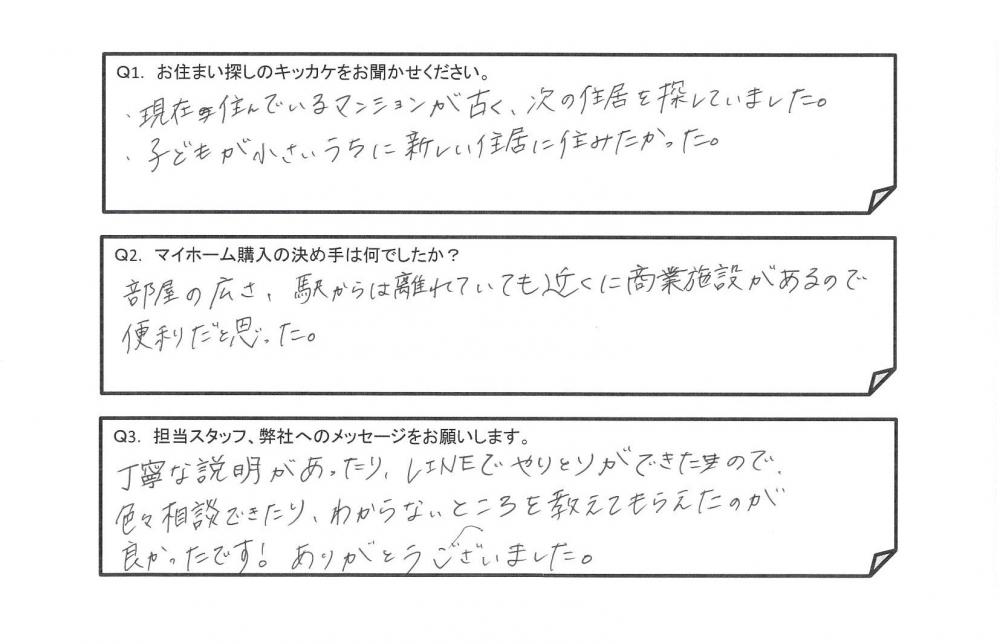 Q1. お住まい探しのキッカケをお聞かせください。
・現在住んでいるマンションが古く、次の住居を探していました。
・子どもが小さいうちに新しい住居に住みたかった。
Q2. マイホーム購入の決め手は何でしたか？
部屋の広さ、駅からは離れていても近くに商業施設があるので
便利だと思った。
Q3. 担当スタッフ、弊社へのメッセージをお願いします。
丁寧な説明があったり、LINEでやりとりができたので、
色々相談できたり、わからないところを教えてもらえたのが
良かったです！ ありがとうございました。